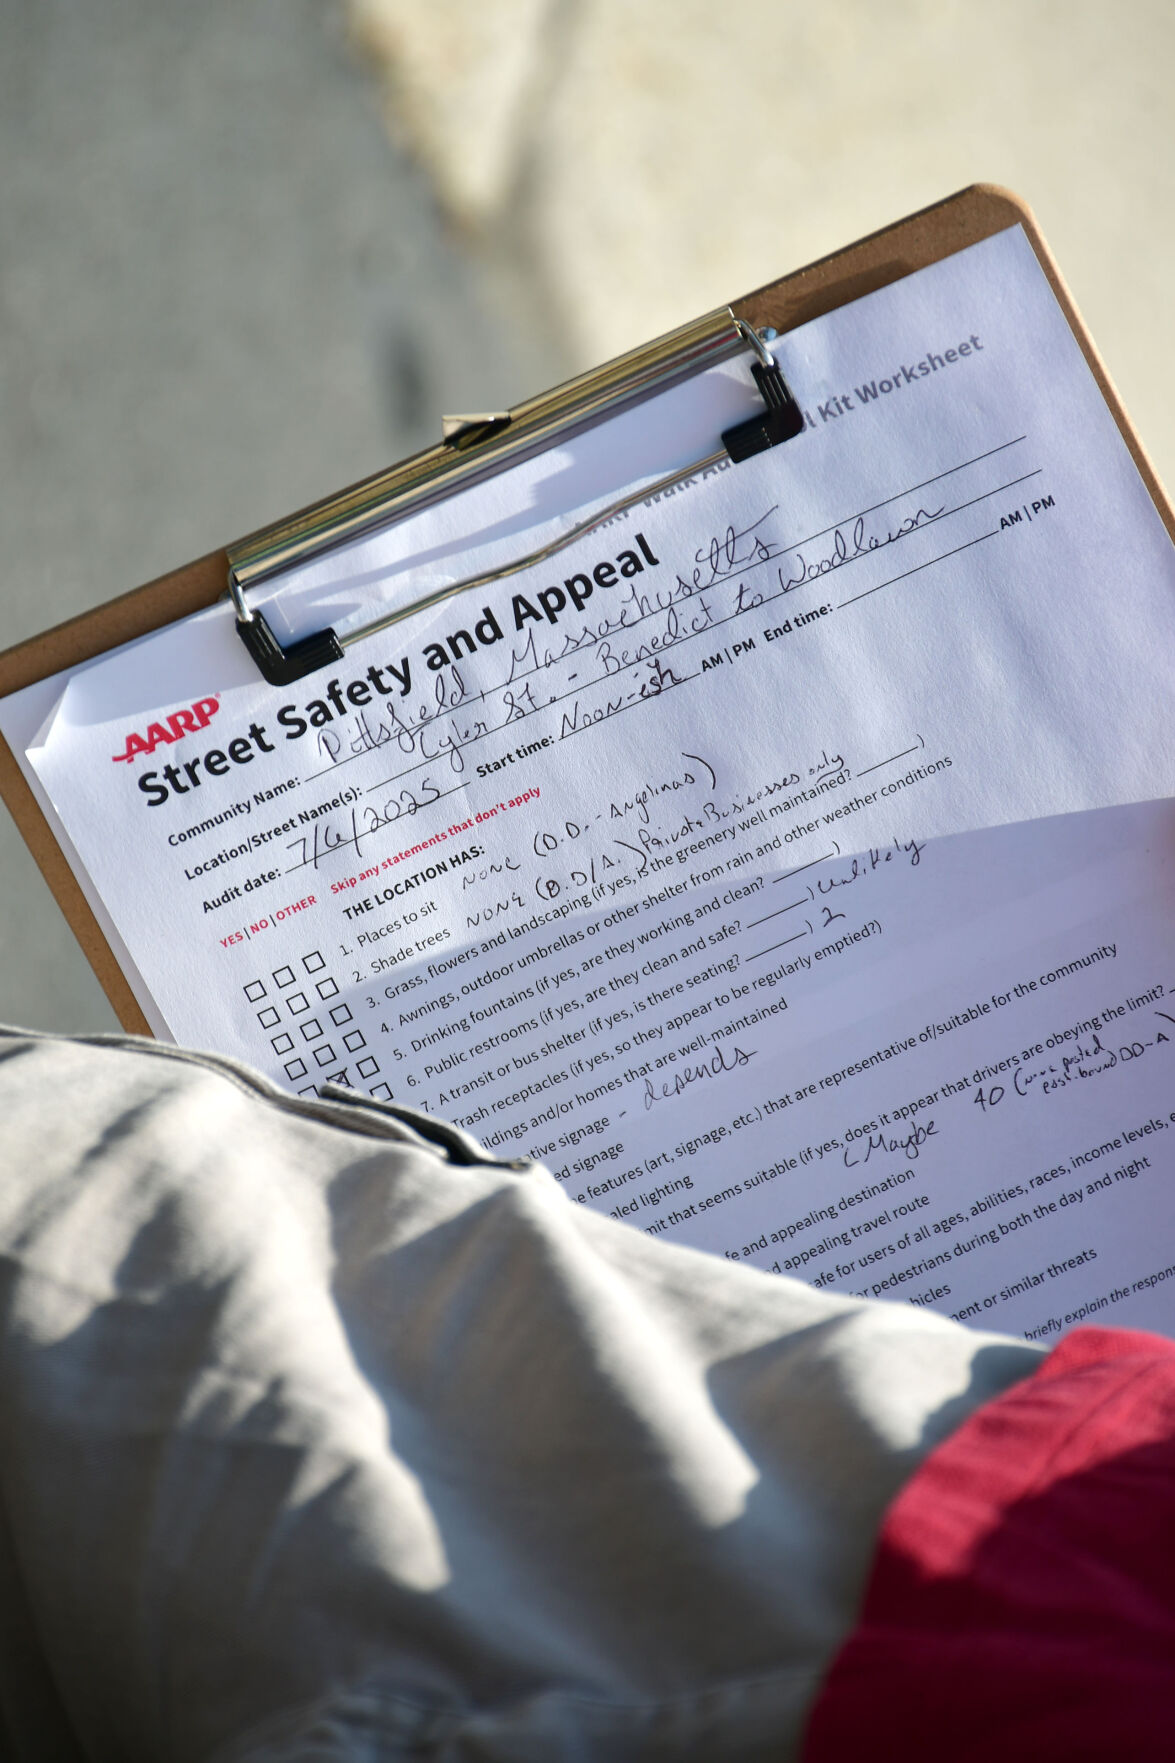 l Kit Worksheet
AARP
Street Safety and Appeal
Community Name: Pittsfield, Massachusetts
Location/Street Name(s): Tyler St. - Benedict to Woodlawn
Audit date: 7/6/2025 Start time: Noon-ish AM | PM End time: AM | PM
YES | NO | OTHER Skip any statements that don't apply
THE LOCATION HAS:
1. Places to sit NONE (D.D. - Angelinas)
2. Shade trees NONE (D.D/A.) Private Businesses only
3. Grass, flowers and landscaping (if yes, is the greenery well maintained? )
4. Awnings, outdoor umbrellas or other shelter from rain and other weather conditions
5. Drinking fountains (if yes, are they working and clean? )
6. Public restrooms (if yes, are they clean and safe? ) unlikely
7. A transit or bus shelter (if yes, is there seating? ) 2
Trash receptacles (if yes, so they appear to be regularly emptied?)
ildings and/or homes that are well-maintained
tive signage - depends
ed signage
e features (art, signage, etc.) that are representative of/suitable for the community
aled lighting
mit that seems suitable (if yes, does it appear that drivers are obeying the limit?
40 (none posted east-bound DD-A)
(Maybe
fe and appealing destination
d appealing travel route
afe for users of all ages, abilities, races, income levels, e
or pedestrians during both the day and night
hicles
ment or similar threats
briefly explain the respon